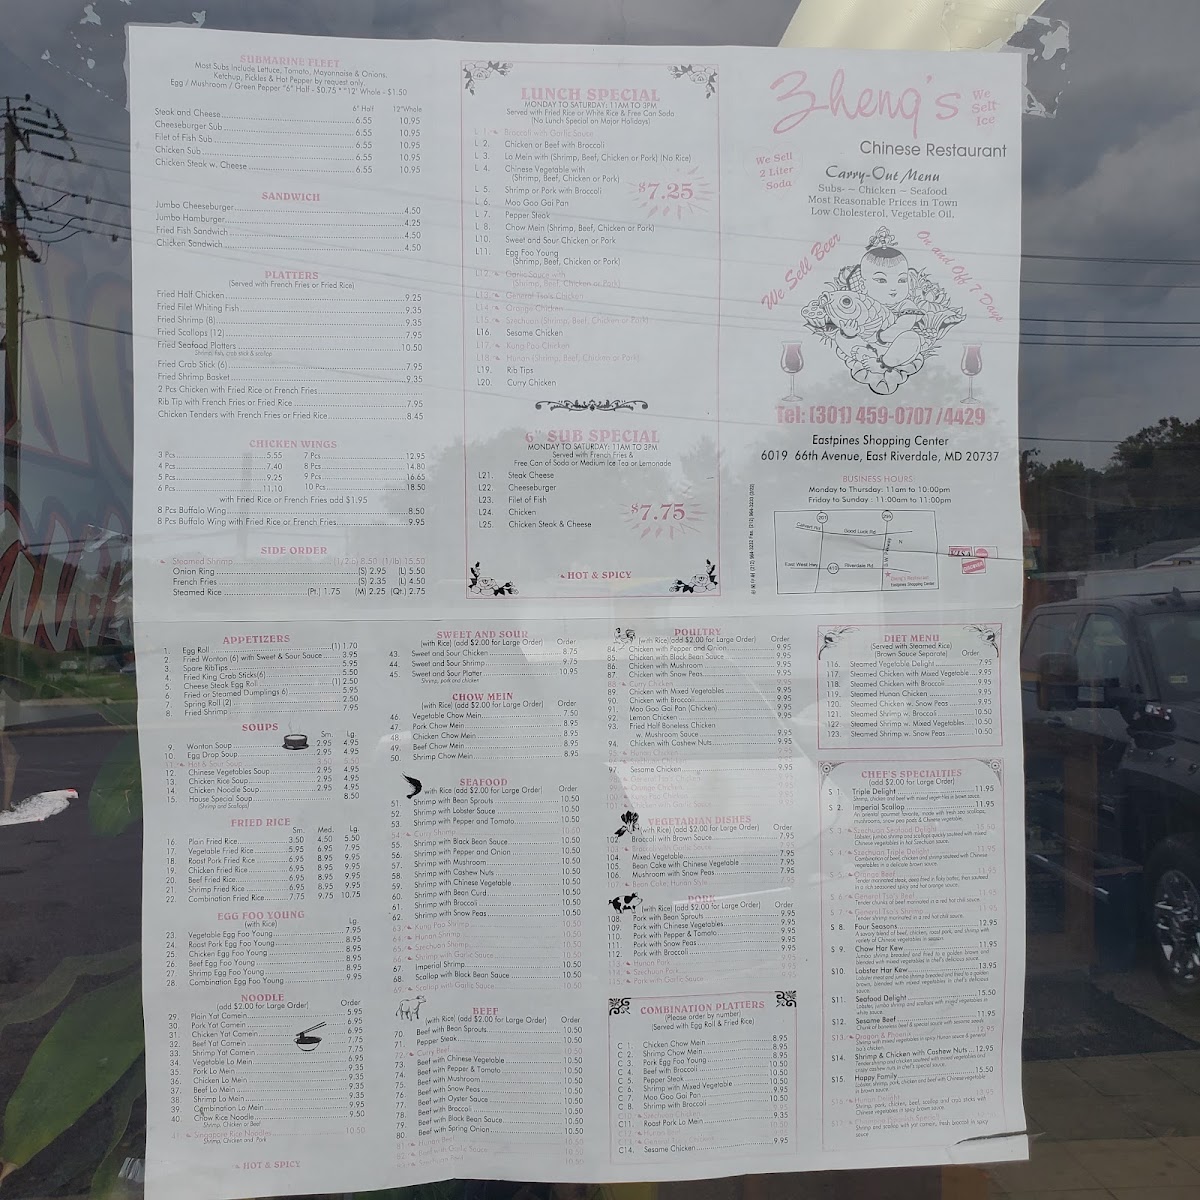 SUBMARINE FLEET
Most Subs Include Lettuce, Tomato, Mayonnaise & Onions.
Ketchup, Pickles & Hot Pepper by request only.
Egg / Mushroom / Green Pepper "6" Half - $0.75 * "12' Whole - $1.50
6" Half 12"Whole
Steak and Cheese 6.55 10.95
Cheeseburger Sub 6.55 10.95
Filet of Fish Sub 6.55 10.95
Chicken Sub 6.55 10.95
Chicken Steak w. Cheese 6.55 10.95
SANDWICH
Jumbo Cheeseburger 4.50
Jumbo Hamburger 4.25
Fried Fish Sandwich 4.50
Chicken Sandwich 4.50
PLATTERS
(Served with French Fries or Fried Rice)
Fried Half Chicken 9.25
Fried Filet Whiting Fish 9.35
Fried Shrimp (8) 9.35
Fried Scallops (12) 7.95
Fried Seafood Platters 10.50
Shrimp, fish, crab stick & scallop
Fried Crab Stick (6) 7.95
Fried Shrimp Basket 9.35
2 Pcs Chicken with Fried Rice or French Fries
Rib Tip with French Fries or Fried Rice 7.95
Chicken Tenders with French Fries or Fried Rice 8.45
CHICKEN WINGS
3 Pcs 5.55 7 Pcs 12.95
4 Pcs 7.40 8 Pcs 14.80
5 Pcs 9.25 9 Pcs 16.65
6 Pcs 11.10 10 Pcs 18.50
with Fried Rice or French Fries add $1.95
8 Pcs Buffalo Wing 8.50
8 Pcs Buffalo Wing with Fried Rice or French Fries 9.95
SIDE ORDER
Steamed Shrimp (1/2lb) 8.50 (1/lb) 15.50
Onion Ring (S) 2.95 (L) 5.50
French Fries (S) 2.35 (L) 4.50
Steamed Rice (Pt.) 1.75 (M) 2.25 (Qt.) 2.75
LUNCH SPECIAL
MONDAY TO SATURDAY: 11AM TO 3PM
Served with Fried Rice or White Rice & Free Can Soda
(No Lunch Special on Major Holidays)
L 1. Broccoli with Garlic Sauce
L 2. Chicken or Beef with Broccoli
L 3. Lo Mein with (Shrimp, Beef, Chicken or Pork) (No Rice)
L 4. Chinese Vegetable with
(Shrimp, Beef, Chicken or Pork)
L 5. Shrimp or Pork with Broccoli
L 6. Moo Goo Gai Pan
L 7. Pepper Steak
L 8. Chow Mein (Shrimp, Beef, Chicken or Pork)
L10. Sweet and Sour Chicken or Pork
L11. Egg Foo Young
(Shrimp, Beef, Chicken or Pork)
L12. Garlic Sauce with
(Shrimp, Beef, Chicken or Pork)
L13. General Tso's Chicken
L14. Orange Chicken
L15. Szechuan (Shrimp, Beef, Chicken or Pork)
L16. Sesame Chicken
L17. Kung Pao Chicken
L18. Hunan (Shrimp, Beef, Chicken or Pork)
L19. Rib Tips
L20. Curry Chicken
$7.25
6" SUB SPECIAL
MONDAY TO SATURDAY: 11AM TO 3PM
Served with French Fries &
Free Can of Soda or Medium Ice Tea or Lemonade
L21. Steak Cheese
L22. Cheeseburger
L23. Filet of Fish
L24. Chicken
L25. Chicken Steak & Cheese
$7.75
HOT & SPICY
Zheng's
We
Sell
Ice
Chinese Restaurant
We Sell
2 Liter
Soda
Carry-Out Menu
Subs- ~ Chicken ~ Seafood
Most Reasonable Prices in Town
Low Cholesterol, Vegetable Oil.
We Sell Beer
On and Off 7 Days
Tel: (301) 459-0707 /4429
Eastpines Shopping Center
6019 66th Avenue, East Riverdale, MD 20737
BUSINESS HOURS
Monday to Thursday: 11am to 10:00pm
Friday to Sunday : 11:00am to 11:00pm
Good Luck Rd
East West Hwy
410
Riverdale Rd
N
Zheng's Restaurant
Eastpines Shopping Center
VISA
APPETIZERS
1. Egg Roll (1) 1.70
2. Fried Wonton (6) with Sweet & Sour Sauce 3.95
3. Spare Rib Tips 5.95
4. Fried King Crab Sticks(6) 5.50
5. Cheese Steak Egg Roll (1) 2.50
6. Fried or Steamed Dumplings 6) 5.95
7. Spring Roll (2) 2.50
8. Fried Shrimp 7.95
SOUPS
Sm. Lg.
9. Wonton Soup 2.95 4.95
10. Egg Drop Soup 2.95 4.95
11. Hot & Sour Soup
12. Chinese Vegetables Soup 2.95 4.95
13. Chicken Rice Soup 2.95 4.95
14. Chicken Noodle Soup 2.95 4.95
15. House Special Soup 8.50
(Shrimp and Scallops)
FRIED RICE
Sm. Med. Lg.
16. Plain Fried Rice 3.50 4.50 5.50
17. Vegetable Fried Rice 5.95 6.95 7.95
18. Roast Pork Fried Rice 6.95 8.95 9.95
19. Chicken Fried Rice 6.95 8.95 9.95
20. Beef Fried Rice 6.95 8.95 9.95
21. Shrimp Fried Rice 6.95 8.95 9.95
22. Combination Fried Rice 7.75 9.75 10.75
EGG FOO YOUNG
(with Rice) Lg.
23. Vegetable Egg Foo Young 7.95
24. Roast Pork Egg Foo Young 8.95
25 Chicken Egg Foo Young 8.95
26 Beef Egg Foo Young 8.95
27 Shrimp Egg Foo Young 8.95
28 Combination Egg Foo Young 9.95
NOODLE
(add $2.00 for Large Order) Order
29. Plain Yat Camein 5.95
30. Pork Yat Camein 6.95
31. Chicken Yat Camein 6.95
32. Beef Yat Camein 7.75
33. Shrimp Yat Camein 7.75
34 Vegetable Lo Mein 6.95
35 Pork Lo Mein 9.35
36 Chicken Lo Mein 9.35
37 Beef Lo Mein 9.35
38 Shrimp Lo Mein 9.35
39 Combination Lo Mein 9.95
40. Chow Rice Noodle 9.50
Shrimp, Chicken or Beef
41. Singapore Rice Noodles 10.50
Shrimp, Chicken and Pork
HOT & SPICY
SWEET AND SOUR
(with Rice) (add $2.00 for Large Order) Order
43. Sweet and Sour Chicken 8.75
44. Sweet and Sour Shrimp 9.75
45. Sweet and Sour Platter 10.95
Shrimp, pork and chicken
CHOW MEIN
(with Rice) (add $2.00 for Large Order) Order
46. Vegetable Chow Mein 7.50
47 Pork Chow Mein 8.95
48 Chicken Chow Mein 8.95
49. Beef Chow Mein 8.95
50. Shrimp Chow Mein 8.95
SEAFOOD
with Rice (add $2.00 for Large Order) Order
51. Shrimp with Bean Sprouts 10.50
52. Shrimp with Lobster Sauce 10.50
53. Shrimp with Pepper and Tomato 10.50
54. Curry Shrimp 10.50
55. Shrimp with Black Bean Sauce 10.50
56. Shrimp with Pepper and Onion 10.50
57. Shrimp with Mushroom 10.50
58. Shrimp with Cashew Nuts 10.50
59. Shrimp with Chinese Vegetable 10.50
60. Shrimp with Bean Curd 10.50
61. Shrimp with Broccoli 10.50
62. Shrimp with Snow Peas 10.50
63. Kung Pao Shrimp 10.50
64. Hunan Shrimp 10.50
65. Szechuan Shrimp 10.50
66. Shrimp with Garlic Sauce 10.50
67. Imperial Shrimp 10.50
68. Scallop with Black Bean Sauce 10.50
69. Scallop with Garlic Sauce 10.50
BEEF
(with Rice) (add $2.00 for Large Order) Order
70. Beef with Bean Sprouts 10.50
71. Pepper Steak 10.50
72. Curry Beef 10.50
73. Beef with Chinese Vegetable 10.50
74. Beef with Pepper & Tomato 10.50
75. Beef with Mushroom 10.50
76. Beef with Snow Peas 10.50
77. Beef with Oyster Sauce 10.50
78. Beef with Broccoli 10.50
79. Beef with Black Bean Sauce 10.50
80. Beef with Spring Onion 10.50
81. Hunan Beef 10.50
82. Beef with Garlic Sauce 10.50
83. Szechuan Beef 10.50
POULTRY
(with Rice) (add $2.00 for Large Order) Order
84. Chicken with Pepper and Onion 9.95
85. Chicken with Black Bean Sauce 9.95
86. Chicken with Mushroom 9.95
87. Chicken with Snow Peas 9.95
88. Curry Chicken 9.95
89. Chicken with Mixed Vegetables 9.95
90. Chicken with Broccoli 9.95
91. Moo Goo Gai Pan (Chicken) 9.95
92. Lemon Chicken 9.95
93. Fried Half Boneless Chicken
w. Mushroom Sauce 9.95
94. Chicken with Cashew Nuts 9.95
97. Sesame Chicken 9.95
VEGETARIAN DISHES
(with Rice) (add $2.00 for Large Order) Order
102. Broccoli with Brown Sauce 7.95
104. Mixed Vegetable 7.95
105. Bean Cake with Chinese Vegetable 7.95
106. Mushroom with Snow Peas 7.95
107. Bean Cake, Hunan Style
PORK
(with Rice) (add $2.00 for Large Order) Order
108. Pork with Bean Sprouts 9.95
109. Pork with Chinese Vegetables 9.95
110. Pork with Pepper & Tomato 9.95
111. Pork with Snow Peas 9.95
112. Pork with Broccoli 9.95
113. Hunan Pork
114. Szechuan Pork
115. Pork with Garlic Sauce
COMBINATION PLATTERS
(Please order by number)
(Served with Egg Roll & Fried Rice)
C 1. Chicken Chow Mein 8.95
C 2. Shrimp Chow Mein 8.95
C 3. Pork Egg Foo Young 8.95
C 4. Beef with Broccoli 10.50
C 5. Pepper Steak 10.50
C 6. Shrimp with Mixed Vegetable 10.50
C 7. Moo Goo Gai Pan 9.95
C 8. Shrimp with Broccoli 10.50
C11. Roast Pork Lo Mein 9.35
C14. Sesame Chicken 9.95
DIET MENU
(Served with Steamed Rice)
(Brown Sauce Separate) Order
116. Steamed Vegetable Delight 7.95
117. Steamed Chicken with Mixed Vegetable 9.95
118. Steamed Chicken with Broccoli 9.95
119. Steamed Hunan Chicken 9.95
120. Steamed Chicken w. Snow Peas 9.95
121. Steamed Shrimp w. Broccoli 10.50
122. Steamed Shrimp w. Mixed Vegetables 10.50
123. Steamed Shrimp w. Snow Peas 10.50
CHEF'S SPECIALTIES
(add $2.00 for Large Order)
S 1. Triple Delight 11.95
Shrimp, chicken and beef with mixed vegetables in brown sauce.
S 2. Imperial Scallop 11.95
An oriental gourmet favorite, made with fresh sea scallops,
mushrooms, snow peas & Chinese vegetable.
S 3. Szechuan Seafood Delight 15.50
Lobster, jumbo shrimp and scallops quickly sauteed with mixed
Chinese vegetables in hot Szechuan sauce.
S 4. Szechuan Triple Delight 11.95
Combination of beef, chicken and shrimp sauteed with Chinese
vegetables in a delicate brown sauce.
S 5. Orange Beef 11.95
Tender marinated steak, deep fried in flaky batter, then sauteed
in a rich seasoned spicy and hot orange sauce.
S 6. General Tso's Chicken
Tender chunks of beef marinated in a red hot chili sauce.
S 7. General Tso's Shrimp 11.95
Tender shrimp marinated in a red hot chili sauce.
S 8. Four Seasons 12.95
A savory blend of beef, chicken, roast pork, and shrimp with
variety of Chinese vegetables in season.
S 9. Chow Har Kew 11.95
Jumbo shrimp breaded and fried to a golden brown and
blended with mixed vegetables in chef's delicious sauce.
S10. Lobster Har Kew 13.95
Lobster meat and jumbo shrimp breaded and fried to a golden
brown, blended with mixed vegetables in chef's delicious
sauce.
S11. Seafood Delight 15.50
Lobster, jumbo shrimp and scallops with mixed vegetables in
white sauce.
S12. Sesame Beef 11.95
Chunk of boneless beef & special sauce with sesame seeds
S13. Dragon & Phoenix
Shrimp with mixed vegetables in spicy Hunan sauce & general
tso's chicken.
S14. Shrimp & Chicken with Cashew Nuts 12.95
Shrimp and chicken sauteed with mixed vegetables and
crispy cashew nuts in chef's special sauce.
S15. Happy Family 15.50
Lobster, shrimp, pork, chicken and beef with Chinese vegetable
in brown sauce.
Shrimp, pork, chicken, beef, scallop and crab sticks with
Chinese vegetables in spicy brown sauce.
Shrimp and scallop with yat camein, fresh broccoli in spicy
sauce